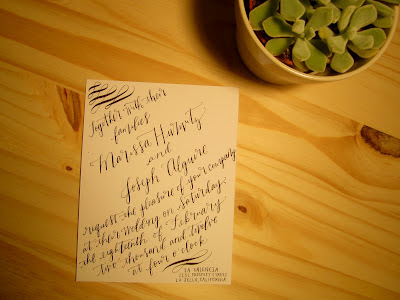 Together with their
families
Marissa Hurwitz
and
Joseph Alguire
request the pleasure of your company
at their wedding on Saturday,
the eighteenth of February
two thousand and twelve
at four o'clock
LA VALENCIA
PROSPECT STREET
LA JOLLA, CALIFORNIA